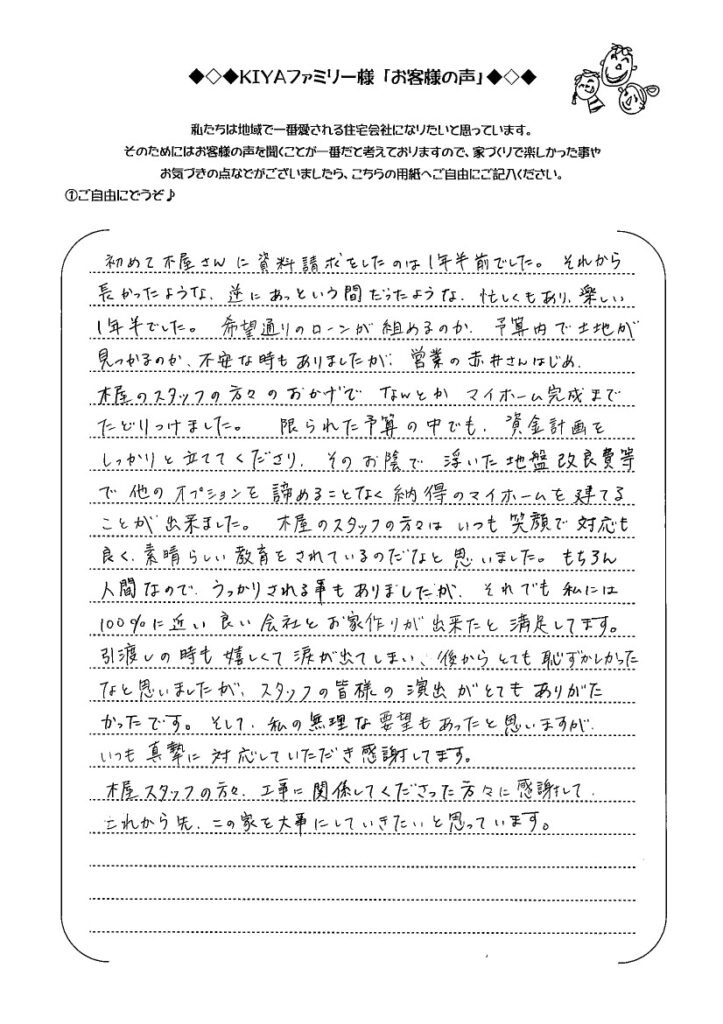 ◆◇◆KIYAファミリー様「お客様の声」◆◇◆
私たちは地域で一番愛される住宅会社になりたいと思っています。
そのためにはお客様の声を聞くことが一番だと考えておりますので、家づくりで楽しかった事や
お気づきの点などがございましたら、こちらの用紙へご自由にご記入ください。
①ご自由にどうぞ♪
初めて木屋さんに資料請求をしたのは1年半前でした。それから
長かったような、逆にあっという間だったような、忙しくもあり、楽しい
1年半でした。希望通りのローンが組めるのか、予算内で土地が
見つかるのか、不安な時もありましたが、営業の赤井さんはじめ、
木屋のスタッフの方々のおかげで なんとか マイホーム完成まで
たどりつけました。 限られた予算の中でも、資金計画を
しっかりと立ててくださり、そのお陰で 浮いた地盤改良費等
で他のオプションを諦めることなく納得のマイホームを建てる
ことが出来ました。木屋のスタッフの方々は いつも笑顔で対応も
良く、素晴らしい教育をされているのだなと思いました。もちろん
人間なので、うっかりされる事もありましたが、それでも私には
100%に近い良い会社とお家作りが出来たと満足してます。
引渡しの時も嬉しくて涙が出てしまい、後からとても恥ずかしかった
なと思いましたが、スタッフの皆様の演出がとてもありがた
かったです。そして、私の無理な要望もあったと思いますが、
いつも真摯に対応していただき感謝してます。
木屋スタッフの方々、工事に関係してくださった方々に感謝して、
これから先、この家を大事にしていきたいと思っています。